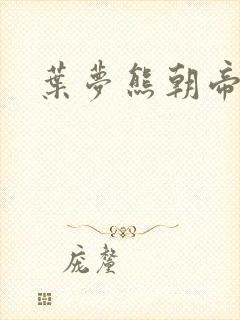 葉夢熊朝帝
庞鳌